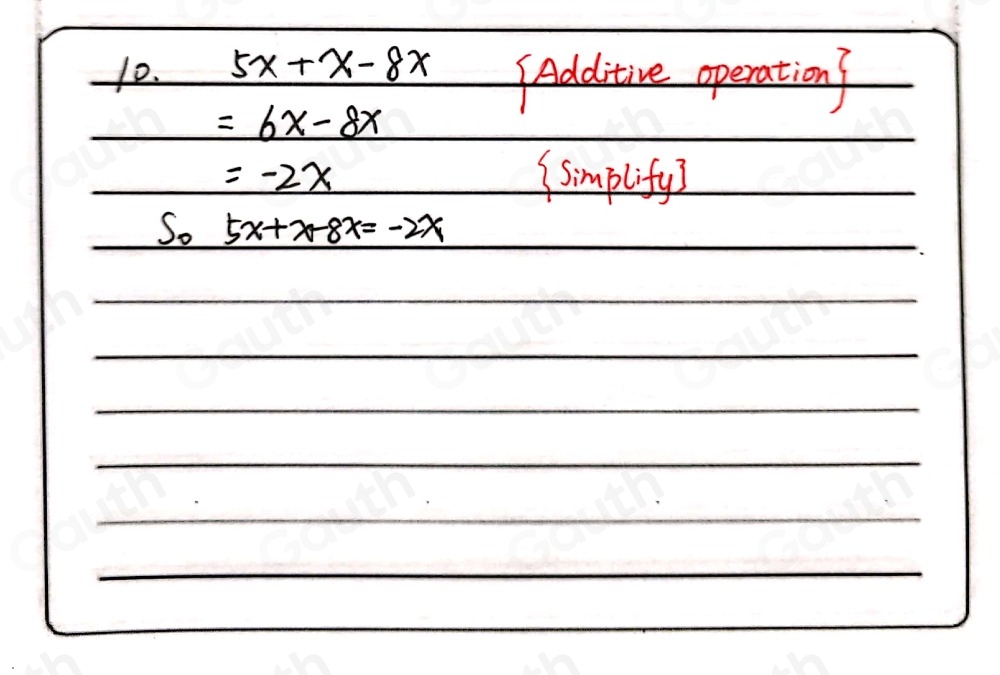 10. 5x+x-8x {Additive operation}
= 6x-8x
= -2x {Simplify}
So 5x+x-8x=-2x